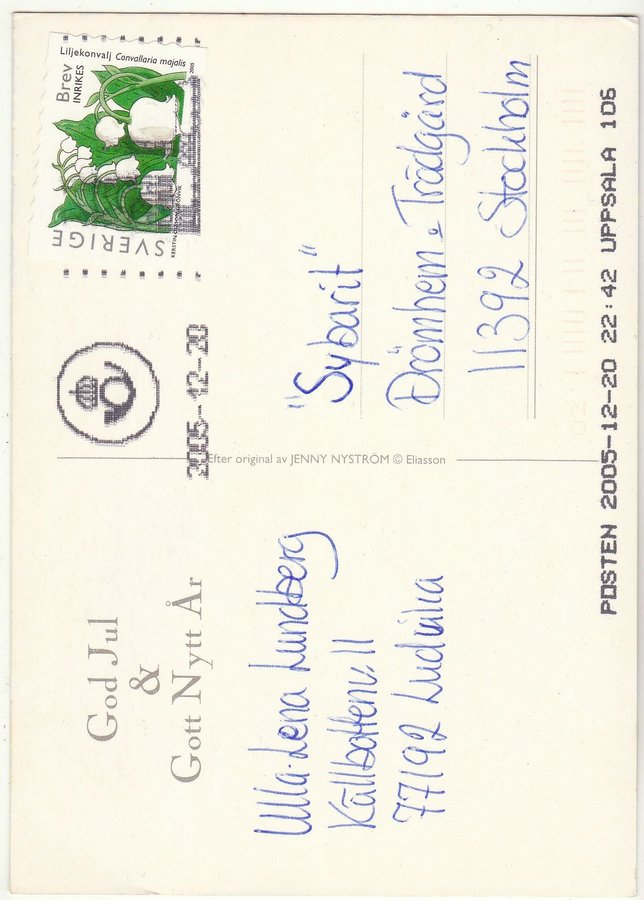 God Jul
&
Gott Nytt År
Ulla-Lena Lundberg
Källbottenv. 11
77192 Ludvika
Efter original av JENNY NYSTRÖM © Eliasson
2005-12-20
Liljekonvalj Convallaria majalis
2005
Brev
INRIKES
SVERIGE
"Sybarit"
Drömhem o Trädgård
11392 Stockholm
POSTEN 2005-12-20 22:42 UPPSALA 106